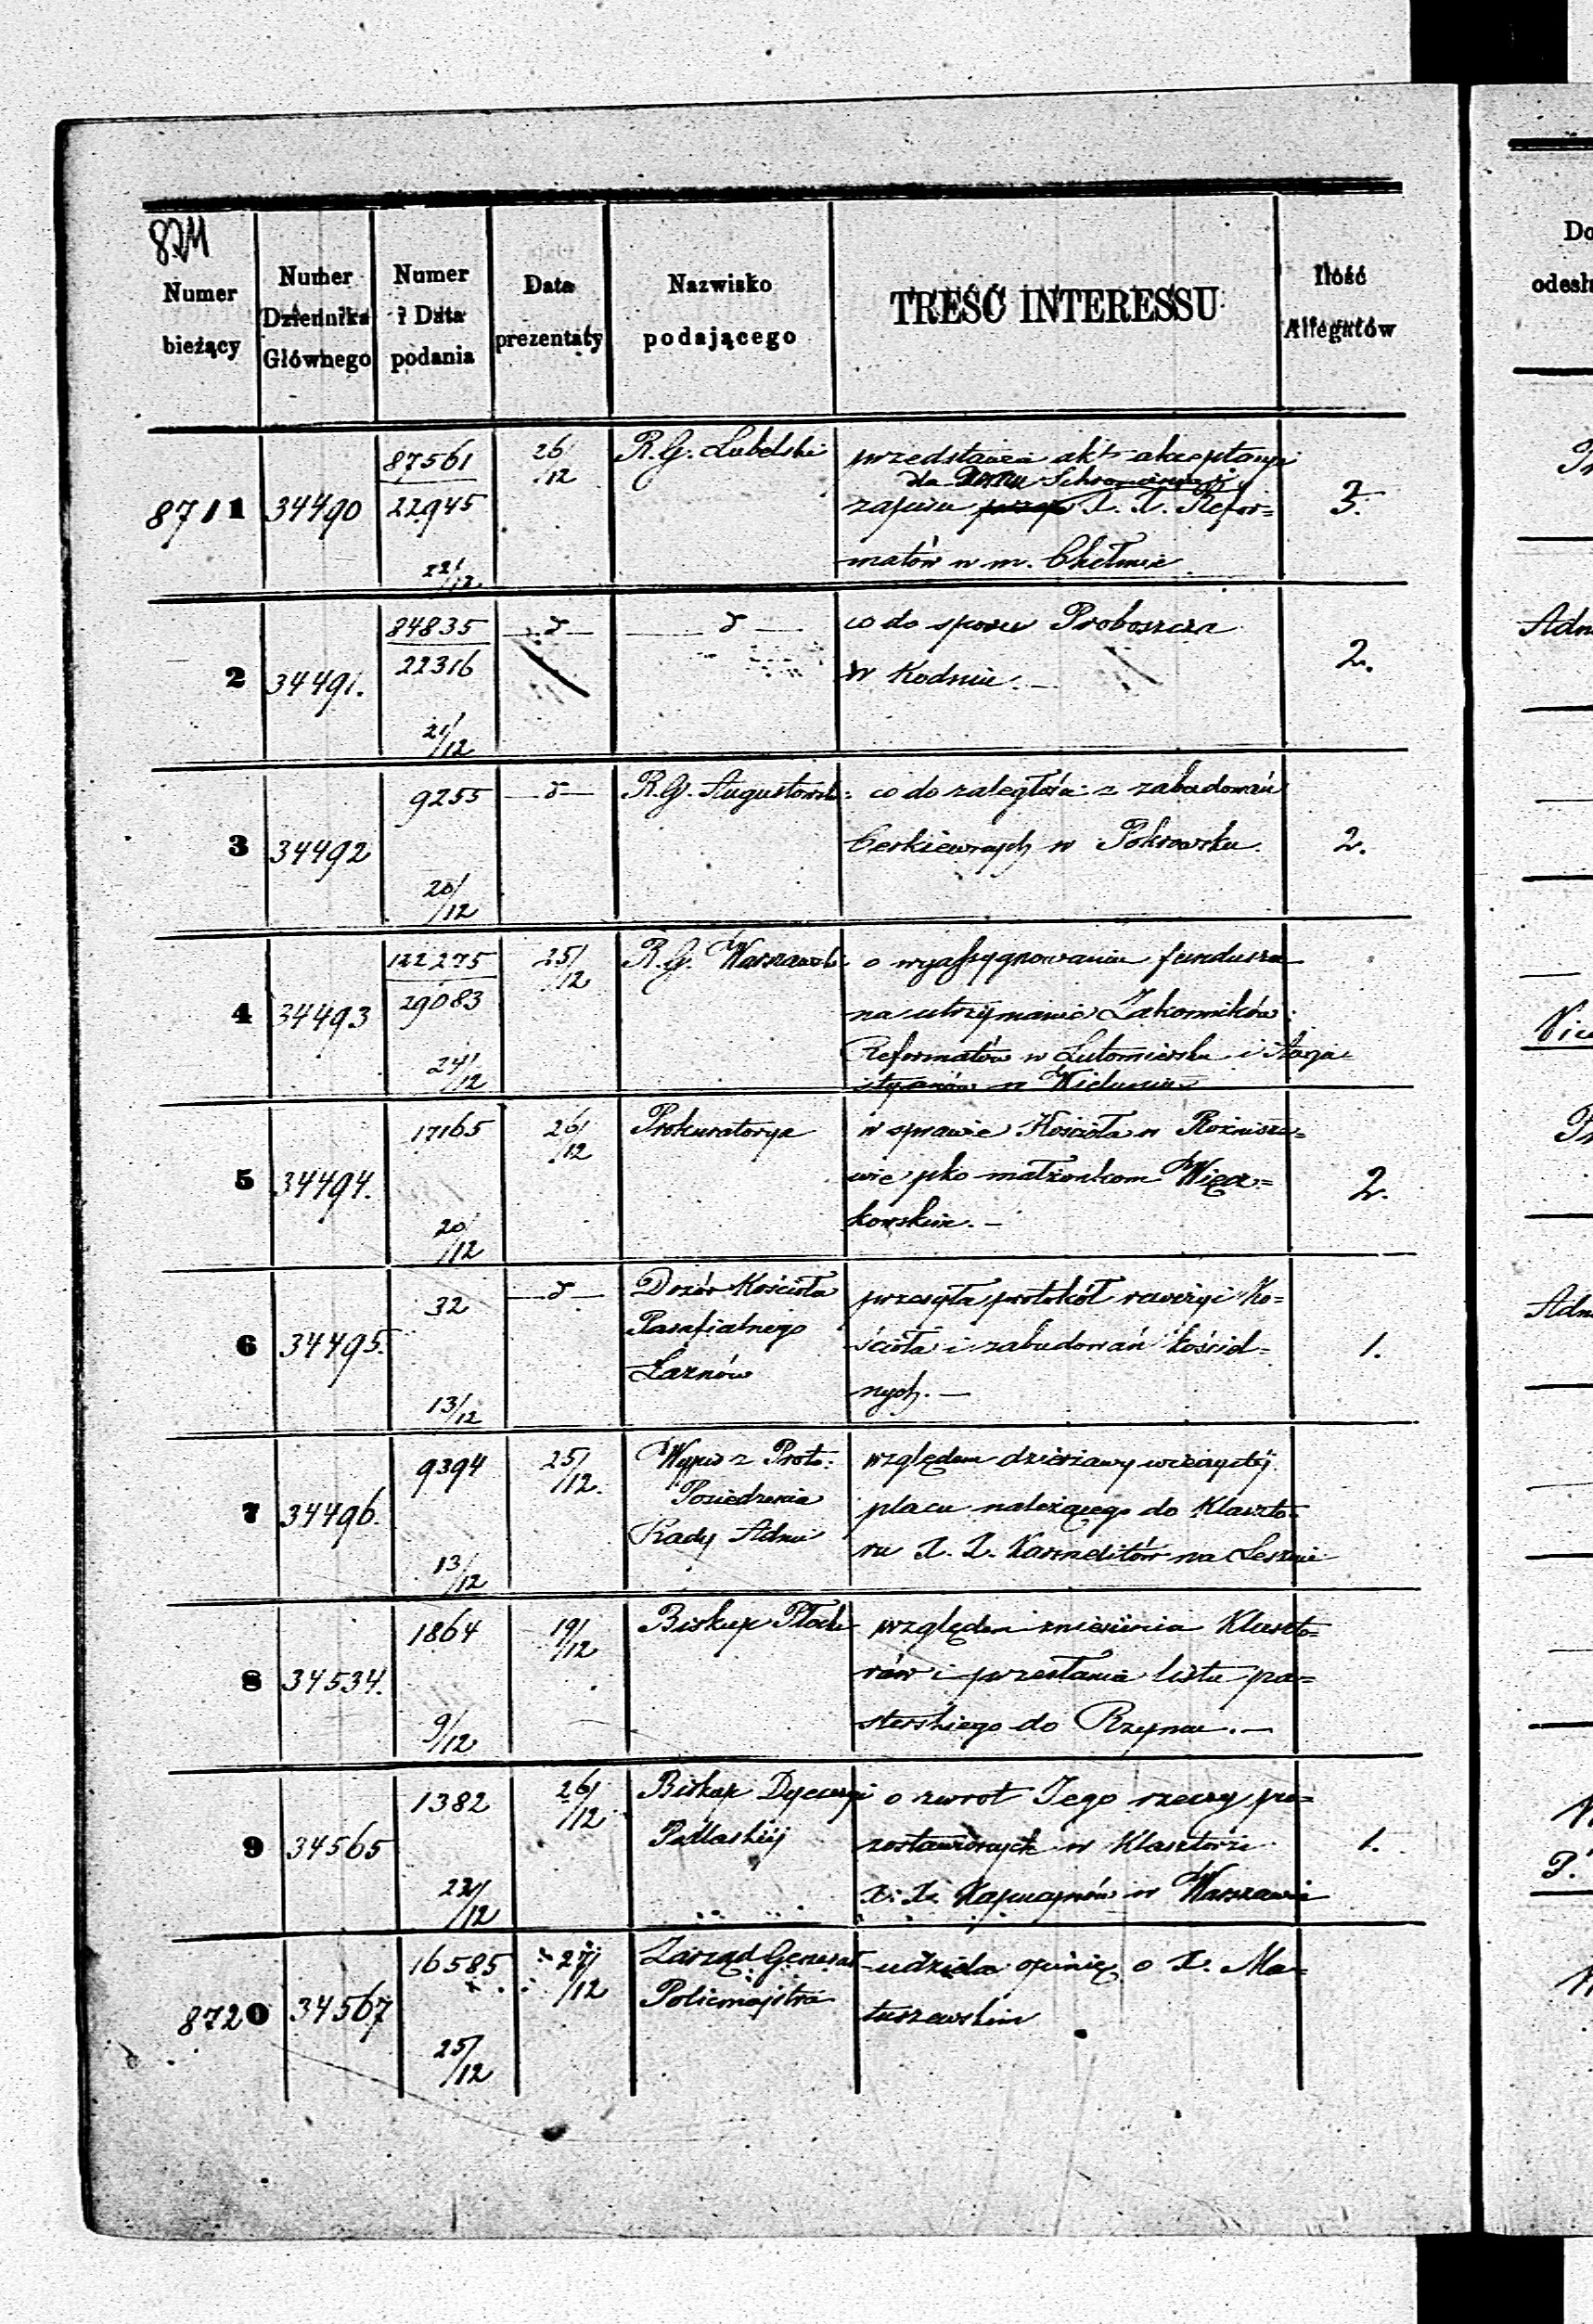 8711
Numer bieżący
Numer Dziennika Głównego
Numer i Data podania
Data prezentaty
Nazwisko podającego
TREŚĆ INTERESSU
Ilość Allegatów
Do
odesł
8711 34490 87561 26/12 R. G. Lubelski przedstawia akt akceptacyi
22945 dla Domu Schronienia 3.
zapisu X. X. Refor=
22/12 matów w m. Chełmie
84835 — d — — d — co do sporu Proboszcza
2 34491. 22316 w Kodniu. — 2.
21/12
9255 — d — R. G. Augustowski: co do zaległości z zabudowań
3 34492 Cerkiewnych w Pokrowsku. 2.
20/12
122275 25/12 R. G. Warszawski o wyassygnowanie fundusza
4 34493 29083 na utrzymanie Zakonników
24/12 Reformatów w Lutomiersku i
w Wieluniu
17165 26/12 Prokuratorya w sprawie Kościoła w Rozniszе=
5 34494. wie pko małżonkom Więc= 2.
20/12 kowskim. —
32 — d — Dozór Kościoła przesyła protokół rewizyi Ko=
6 34495. Parafialnego ścioła i zabudowań kościel= 1.
Żarnów
13/12 nych. —
9394 25/12. Wypis z Proto: względem dzierżawy wieczystej
7 34496. Posiedzenia placu należącego do Klaszto=
Rady Admi
13/12 ru X. X. Karmelitów na Lesznie
1864 19/12 Biskup Płocki względem zniesienia Klaszto=
8 34534. rów i przesłania listu pa=
9/12 sterskiego do Rzymu. —
1382 26/12 Biskup Dyecezyi o zwrot Jego rzeczy po=
9 34565 Podlaskiej zostawionych w Klasztorze 1.
22/12 X. X. Kapucynów w Warszawie
16585 27/12 Zarząd Generał udziela opinię o X. Ma=
8720 34567 Policmajstra tuszewskim
25/12